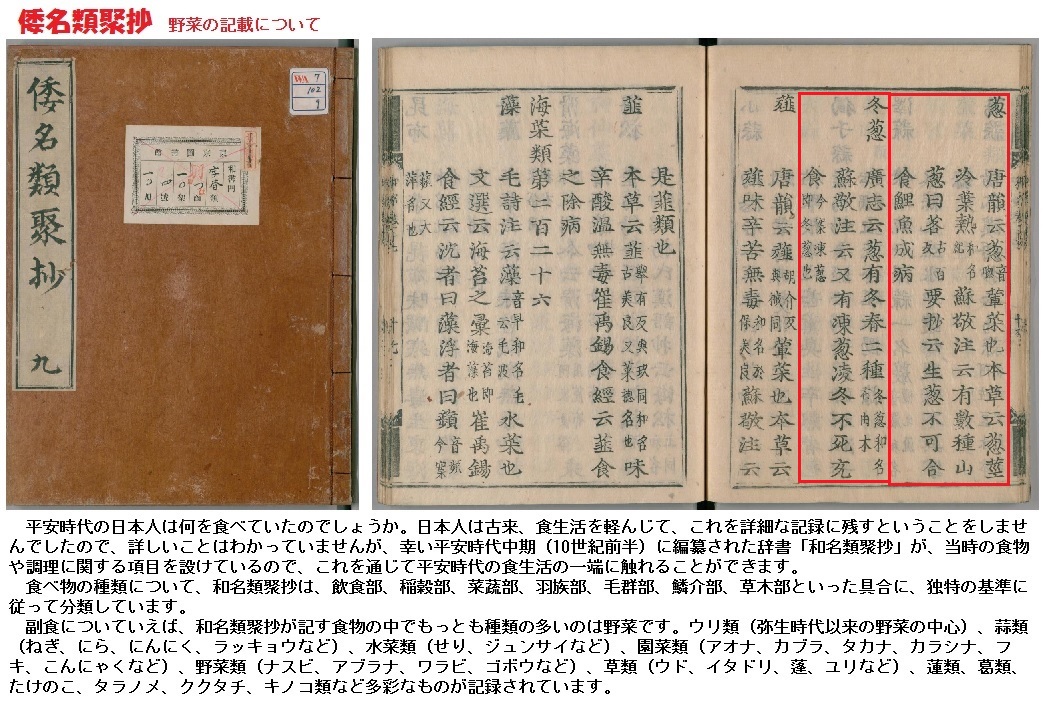 倭名類聚抄 野菜の記載について
倭名類聚抄 九
WA 7
102
9
葱 唐韻云葱音聰葷菜也本草云葱莖
冷葉熱和名紀蘇敬注云有數種山
葱曰茖古百反要抄云生葱不可合
食鯉魚成病
冬葱 廣志云葱有冬春二種冬葱和名
蘇敬注云又有凍葱凌冬不死充
食今案凍葱即冬葱也
薤 唐韻云薤胡介反與械同葷菜也本草云
薤味辛苦無毒和名於保美良蘇敬注云
是韮類也
韮 本草云韮舉有反與玖同和名古美良又菜名也味
辛酸溫無毒崔禹錫食經云韮食
之除病
海菜類第二百二十六
藻 毛詩注云藻音早和名毛云毛波水菜也
文選云海苔之彙海苔即海藻也崔禹錫
食經云沈者曰藻浮者曰蘋音頻今案
蘋又大萍名也
平安時代の日本人は何を食べていたのでしょうか。日本人は古来、食生活を軽んじて、これを詳細な記録に残すということをしませ
んでしたので、詳しいことはわかっていませんが、幸い平安時代中期（10世紀前半）に編纂された辞書「和名類聚抄」が、当時の食物
や調理に関する項目を設けているので、これを通じて平安時代の食生活の一端に触れることができます。
食べ物の種類について、和名類聚抄は、飲食部、稲穀部、菜蔬部、羽族部、毛群部、鱗介部、草木部といった具合に、独特の基準に
従って分類しています。
副食についていえば、和名類聚抄が記す食物の中でもっとも種類の多いのは野菜です。ウリ類（弥生時代以来の野菜の中心）、蒜類
（ねぎ、にら、にんにく、ラッキョウなど）、水菜類（せり、ジュンサイなど）、園菜類（アオナ、カブラ、タカナ、カラシナ、フ
キ、こんにゃくなど）、野菜類（ナスビ、アブラナ、ワラビ、ゴボウなど）、草類（ウド、イタドリ、蓬、ユリなど） 蓮類、葛類、
たけのこ、タラノメ、ククタチ、キノコ類など多彩なものが記録されています。